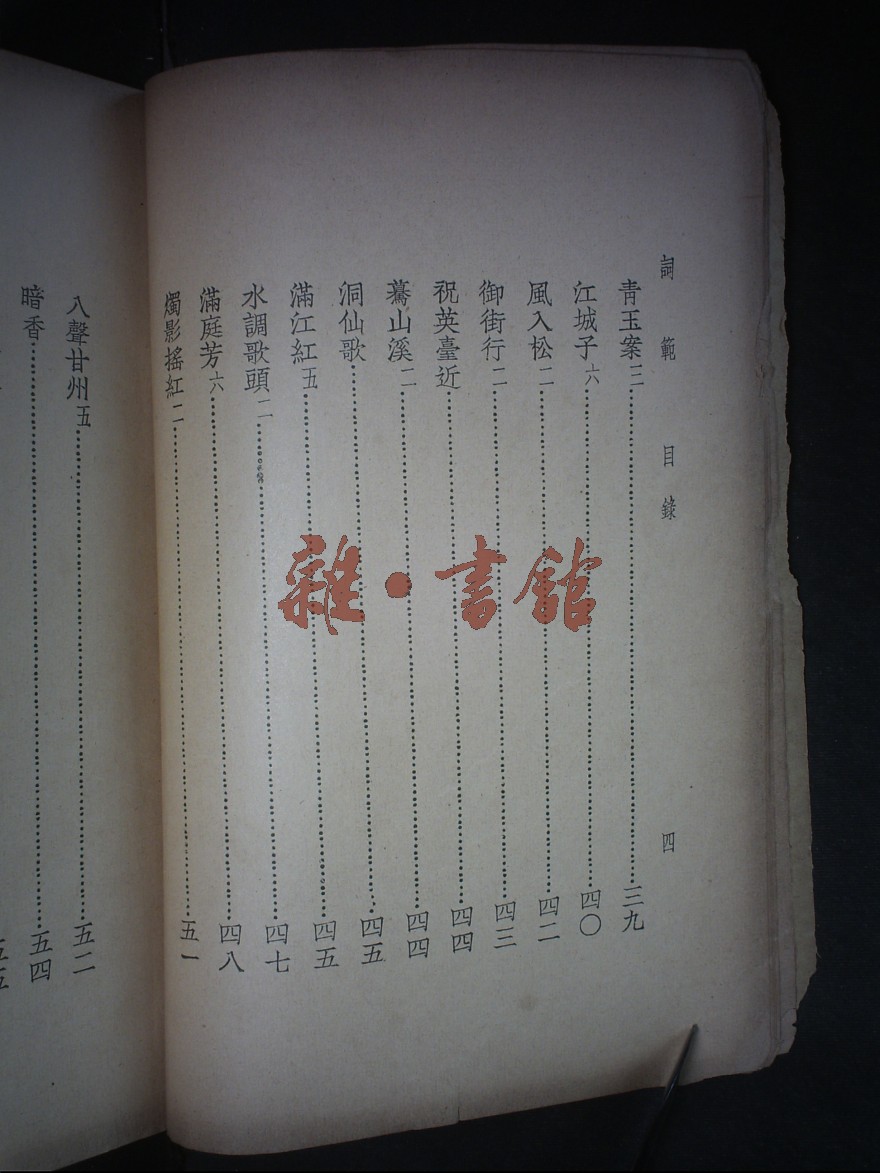 詞範 目錄 四
青玉案三……三九
江城子六……四〇
風入松二……四二
御街行二……四三
祝英臺近……四四
驀山溪二……四四
洞仙歌……四五
滿江紅五……四五
水調歌頭二……四七
滿庭芳六……四八
燭影搖紅二……五一
八聲甘州五……五二
暗香……五四
雜·書館